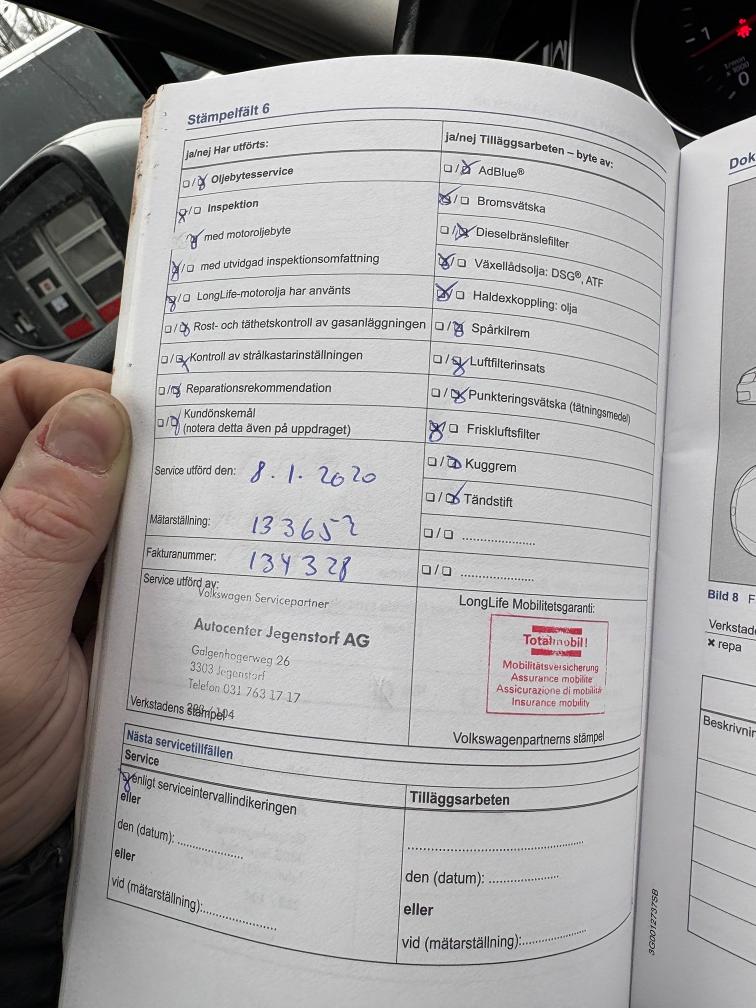 Stämpelfält 6
ja/nej Har utförts:
☐/☒ Oljebytesservice
☒/☐ Inspektion
☒ med motoroljebyte
☒/☐ med utvidgad inspektionsomfattning
☒/☐ LongLife-motorolja har använts
☐/☒ Rost- och täthetskontroll av gasanläggningen
☐/☒ Kontroll av strålkastarinställningen
☐/☒ Reparationsrekommendation
☐/☒ Kundönskemål
(notera detta även på uppdraget)
Service utförd den: 8.1.2020
Mätarställning: 133652
Fakturanummer: 134328
Service utförd av:
Volkswagen Servicepartner
Autocenter Jegenstorf AG
Galgenhogerweg 26
3303 Jegenstorf
Telefon 031 763 17 17
Verkstadens stämpel
ja/nej Tilläggsarbeten – byte av:
☐/☒ AdBlue®
☒/☐ Bromsvätska
☐/☒ Dieselbränslefilter
☒/☐ Växellådsolja: DSG®, ATF
☒/☐ Haldexkoppling: olja
☐/☒ Spårkilrem
☐/☒ Luftfilterinsats
☐/☒ Punkteringsvätska (tätningsmedel)
☒/☐ Friskluftsfilter
☐/☒ Kuggrem
☐/☒ Tändstift
☐/☐ ....................
☐/☐ ....................
LongLife Mobilitetsgaranti:
Totalmobil!
Mobilitätsversicherung
Assurance mobilité
Assicurazione di mobilità
Insurance mobility
Volkswagenpartnerns stämpel
Nästa servicetillfällen
Service
☒ enligt serviceintervallindikeringen
eller
den (datum): ..................
eller
vid (mätarställning):..................
Tilläggsarbeten
..............................................
den (datum): ..................
eller
vid (mätarställning):..................
3G0012737SB
Dok
Bild 8 F
Verkstad
✖ repa
Beskrivnin
1
0
1/min
x 1000